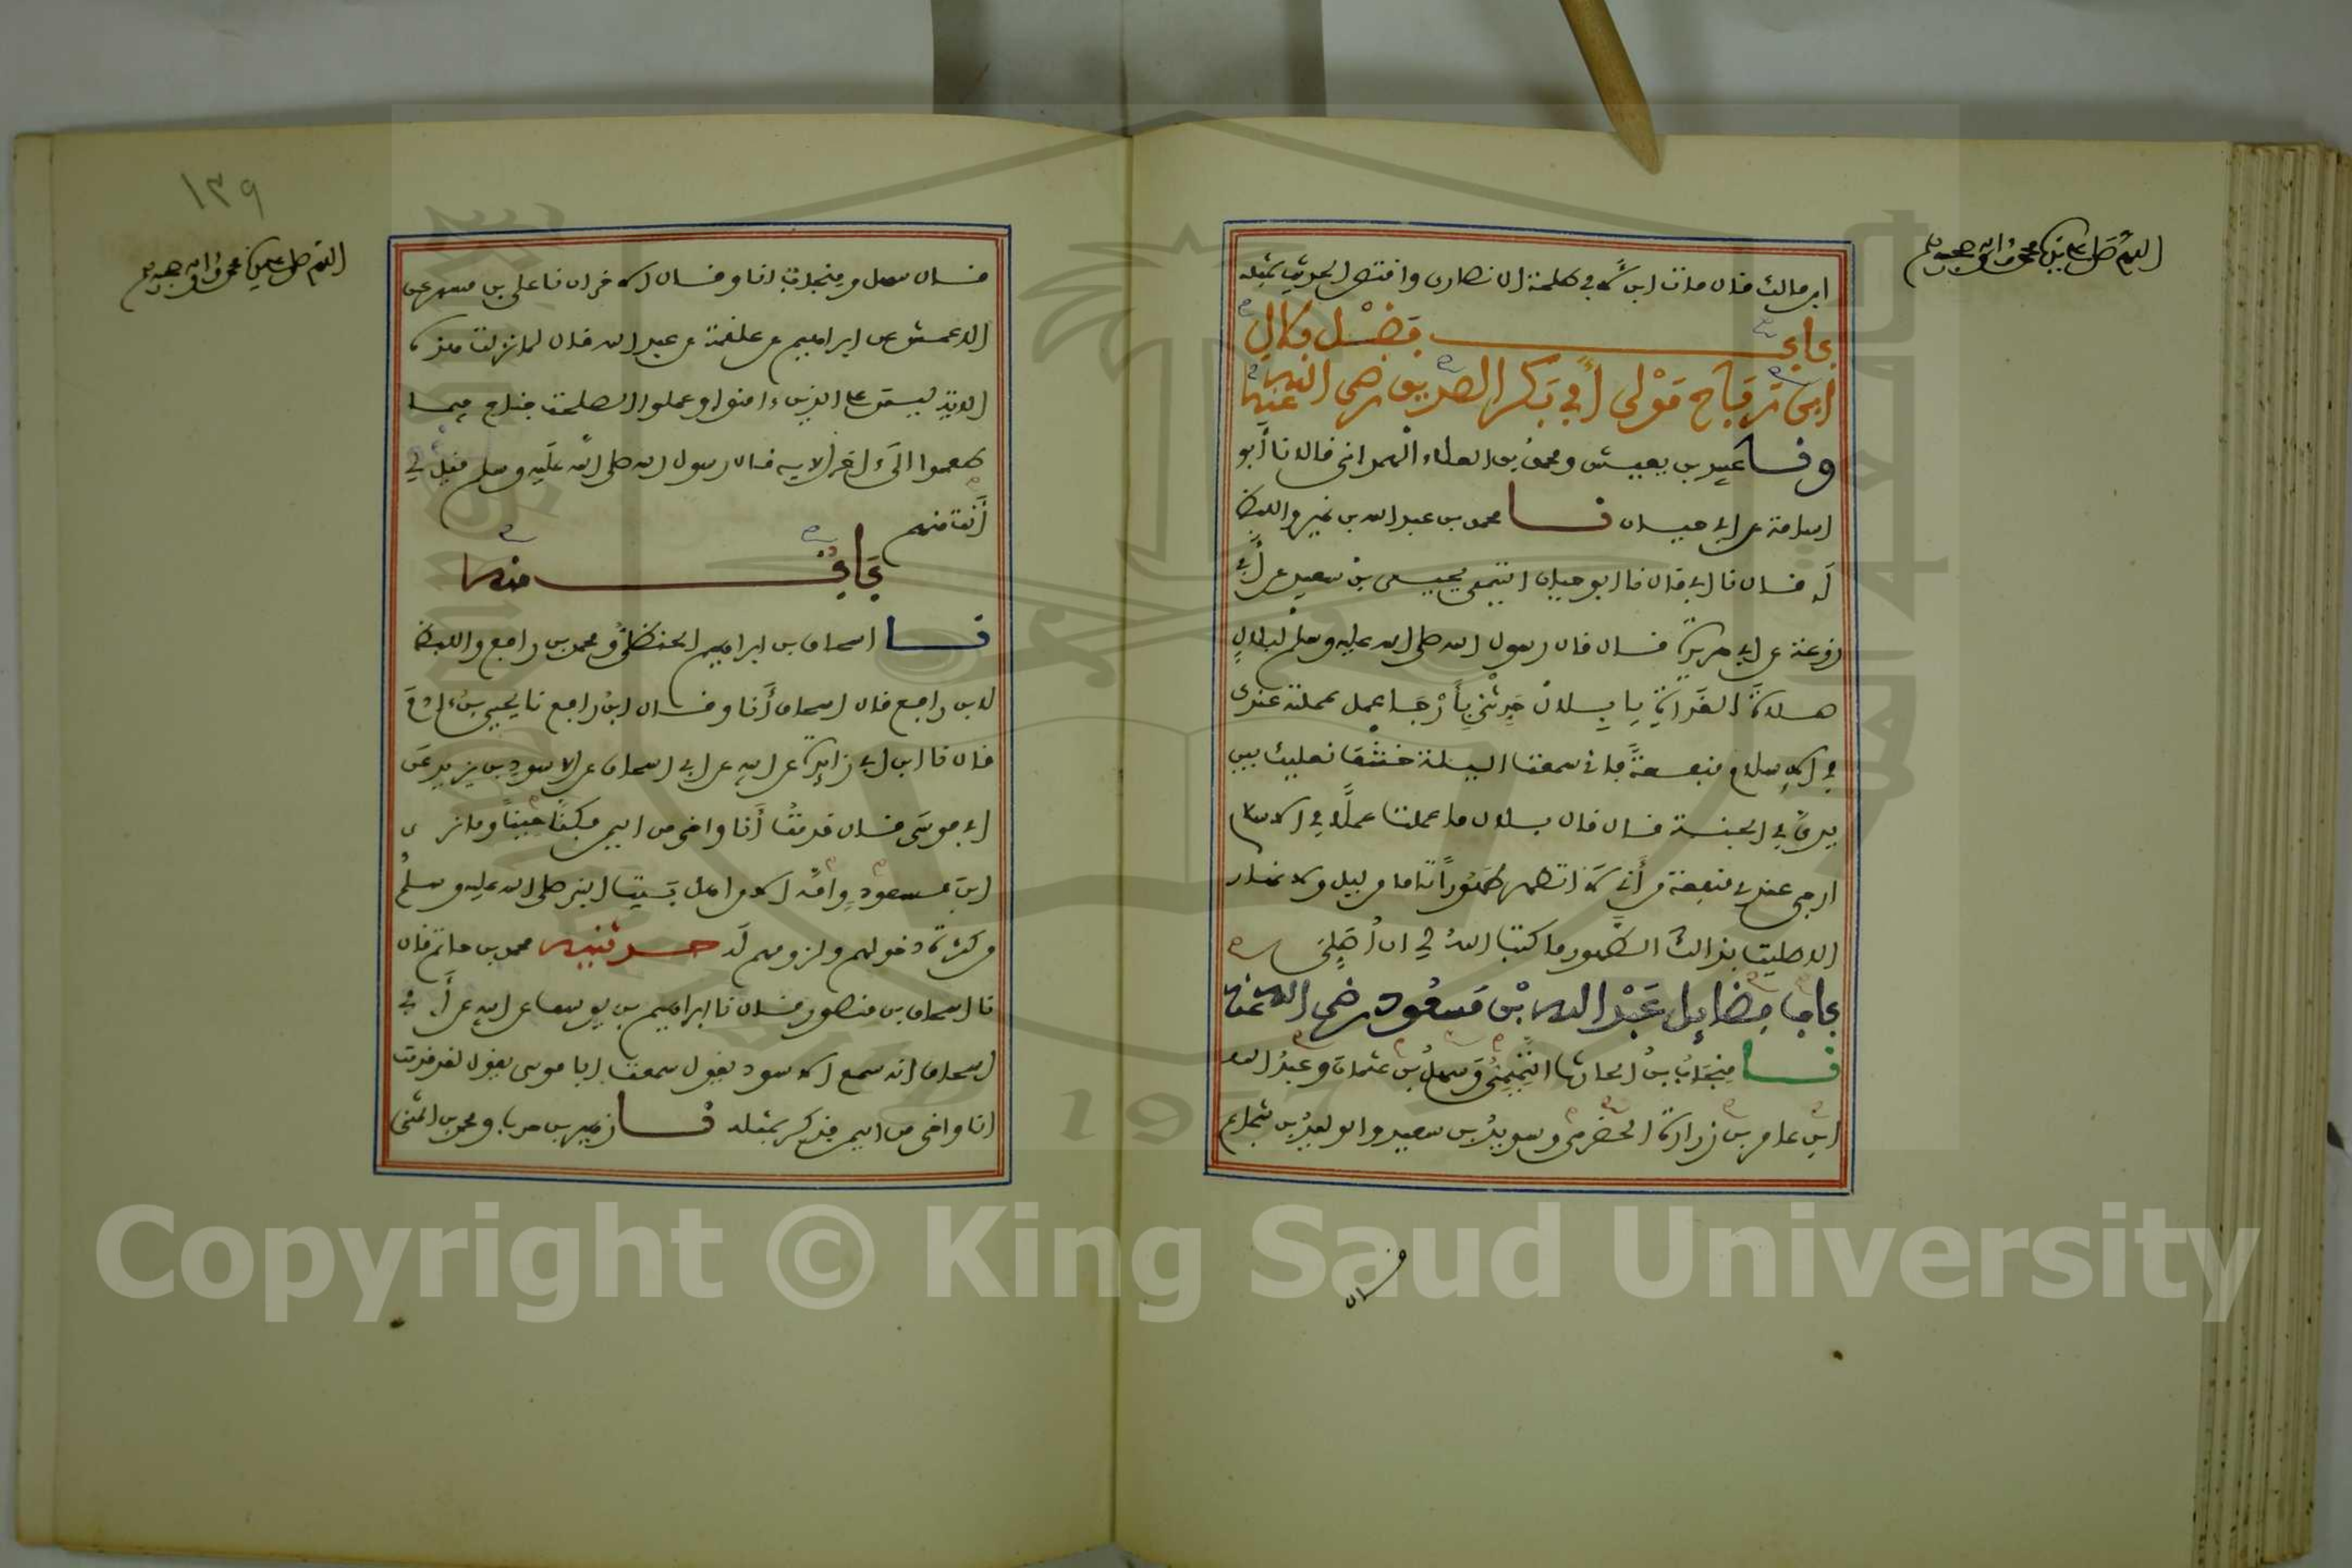 اللهم صل على نبيك محمد وآله وصحبه
ابن مالك قال مات ابن لابي طلحة الانصاري واقتص الحديث بمثله
باب فضل بلال
ابن رباح مولى أبي بكر الصديق رضي الله عنهما
ونا عبيد بن يعيش ومحمد بن العلاء الهمداني قالا نا أبو
اسامة عن ابي حيان نا محمد بن عبد الله بن نمير واللفظ
له قال نا ابي قال نا ابو حيان التيمي يحيى بن سعيد عن أبي
زرعة عن ابي هريرة قال قال رسول الله صلى الله عليه وسلم لبلال
صلاة الغداة يا بلال حدثني بأرجا عمل عملته عندك
في الاسلام منفعة فاني سمعت الليلة خشف نعليك بين
يدي في الجنة قال قال بلال ما عملت عملا في الاسلام
ارجى عندي منفعة من أني لا اتطهر طهورا تاما من ليل ولا نهار
الا صليت بذالك الطهور ما كتب الله لي ان أصلي
باب فضايل عبد الله بن مسعود رضي الله عنه
نا منجاب بن الحارث التميمي وسهل بن عثمان وعبد الله
ابن عامر بن زرارة الحضرمي وسويد بن سعيد والوليد بن شجاع
قال
١٣٩
اللهم صل على نبيك محمد وآله وصحبه
قال سهل ومنجاب انا وقال الاخران نا علي بن مسهر عن
الاعمش عن ابراهيم عن علقمة عن عبد الله قال لما نزلت هذه
الاية ليس على الذين ءامنوا وعملوا الصلحت جناح فيما
طعموا الى ءاخر الاية قال رسول الله صلى الله عليه وسلم قيل لي
أنت منهم
باب منه
نا اسحاق بن ابراهيم الحنظلي ومحمد بن رافع واللفظ
لابن رافع قال اسحاق أنا وقال ابن رافع نا يحيى بن ءادم
قال نا ابن ابي زايدة عن ابيه عن ابي اسحاق عن الاسود بن يزيد عن
ابي موسى قال قدمت أنا واخي من اليمن فكنا حينا وما نرى
ابن مسعود وامه الا من اهل بيت النبي صلى الله عليه وسلم
من كثرة دخولهم ولزومهم له حدثنيه محمد بن حاتم قال
نا اسحاق بن منصور قال نا ابراهيم بن يوسف عن ابيه عن أبي
اسحاق انه سمع الاسود يقول سمعت ابا موسى يقول لقد قدمت
انا واخي من اليمن فذكر بمثله نا زهير بن حرب ومحمد بن المثنى
Copyright © King Saud University
1957